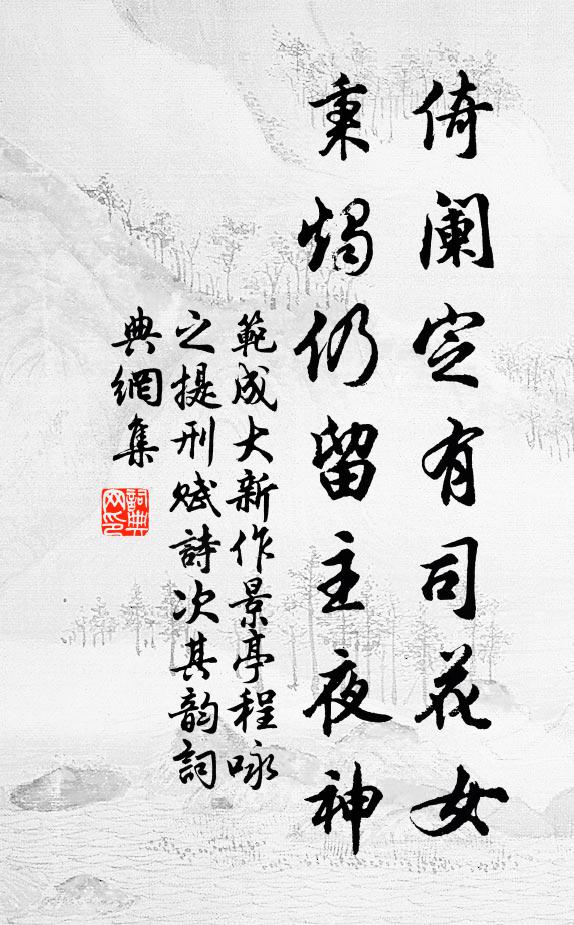 倚阑定有司花女
秉烛仍留主夜神
範成大新作景亭程咏
之提刑赋詩次其韵詞
典網集
詞典
网印